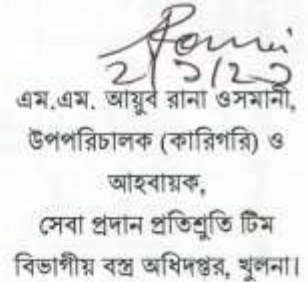 এম.এম. আয়ুব রানা ওসমানী,
উপপরিচালক (কারিগরি) ও
আহবায়ক,
সেবা প্রদান প্রতিশ্রুতি টিম
বিভাগীয় বস্ত্র অধিদপ্তর, খুলনা।